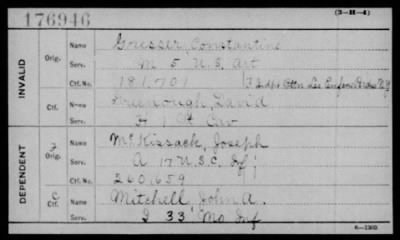 176946
(3-H-4)
INVALID
Orig. Name Gresser, Constantine
Serv. M 5 U.S. Art
Ctf. No. 181,701
Ctf. Name Greenough, David
Serv. H 1 Cav
DEPENDENT
Orig. Name McKissack, Joseph
Serv. A 17 U.S.C. Inf;
Ctf. No. 260,659
Ctf. Name Mitchell, John A.
Serv. I 33 Mo Inf
6-1303